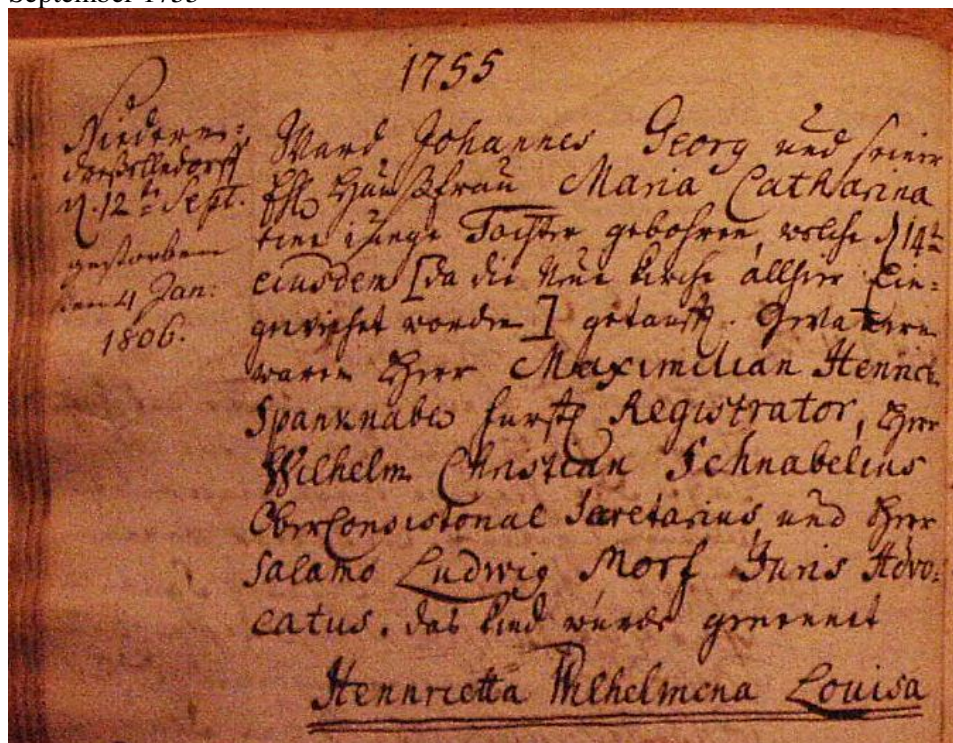 September 1755
1755
Niedern:
dreßelndorff
d. 12te Sept.
gestorben
den 4 Jan:
1806.
Ward Johannes Georg und seiner
Ehl Haußfrau Maria Catharina
eine junge Tochter gebohren, welche d 14te
eiusdem [da die Neue Kirche allhier Ein=
geweihet worden] getaufft. Gevattern
waren Herr Maximilian Henrich
Spanknabe Fürstl Registrator, Herr
Wilhelm Christian Schnabelius
OberConsistorial Secretarius und Herr
Salamo Ludwig Morf Juris Advo=
catus. das Kind wurde genennet
Hennrietta Wilhelmena Louisa